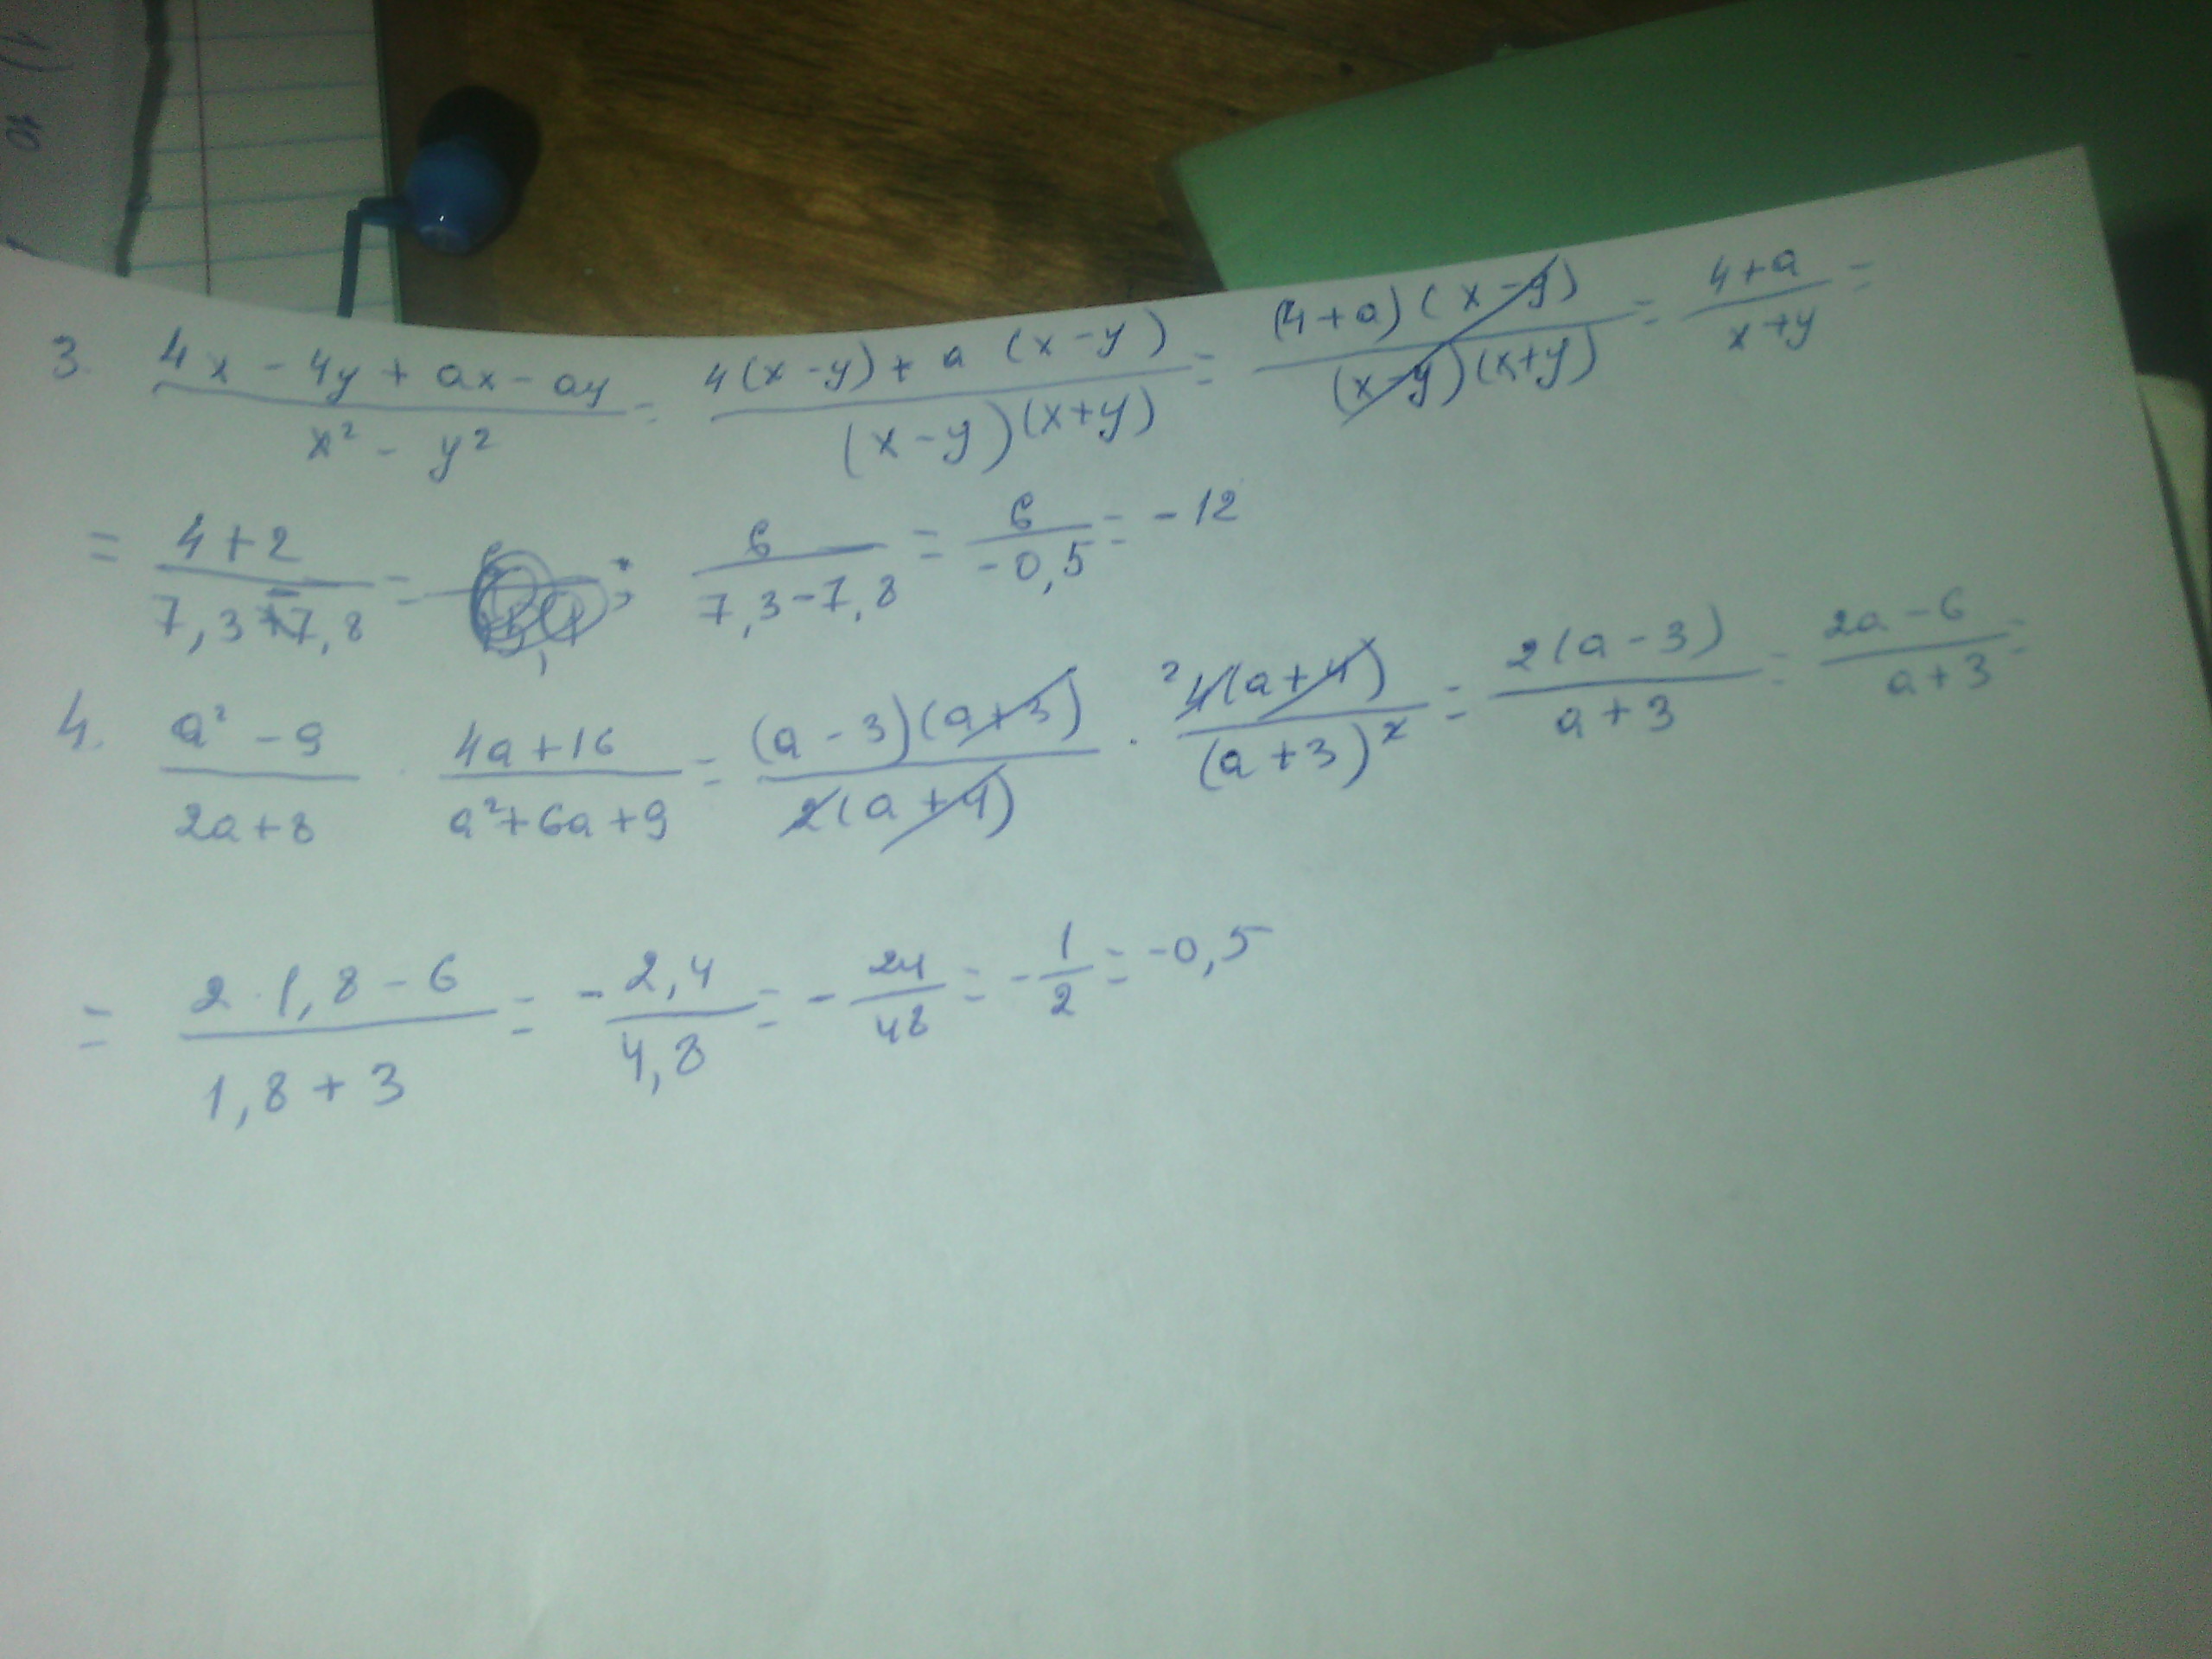 3. (4x - 4y + ax - ay)/(x² - y²) = (4(x-y) + a(x-y))/((x-y)(x+y)) = ((4+a)(x-y))/((x-y)(x+y)) = (4+a)/(x+y) =
= (4+2)/(7,3-7,8) = ; 6/(7,3-7,8) = 6/(-0,5) = -12
4. (a² - 9)/(2a+8) · (4a+16)/(a²+6a+9) = ((a-3)(a+3))/(2(a+4)) · ²4(a+4)/(a+3)² = 2(a-3)/(a+3) = (2a-6)/(a+3) =
= (2·1,8-6)/(1,8+3) = -2,4/4,8 = -24/48 = -1/2 = -0,5